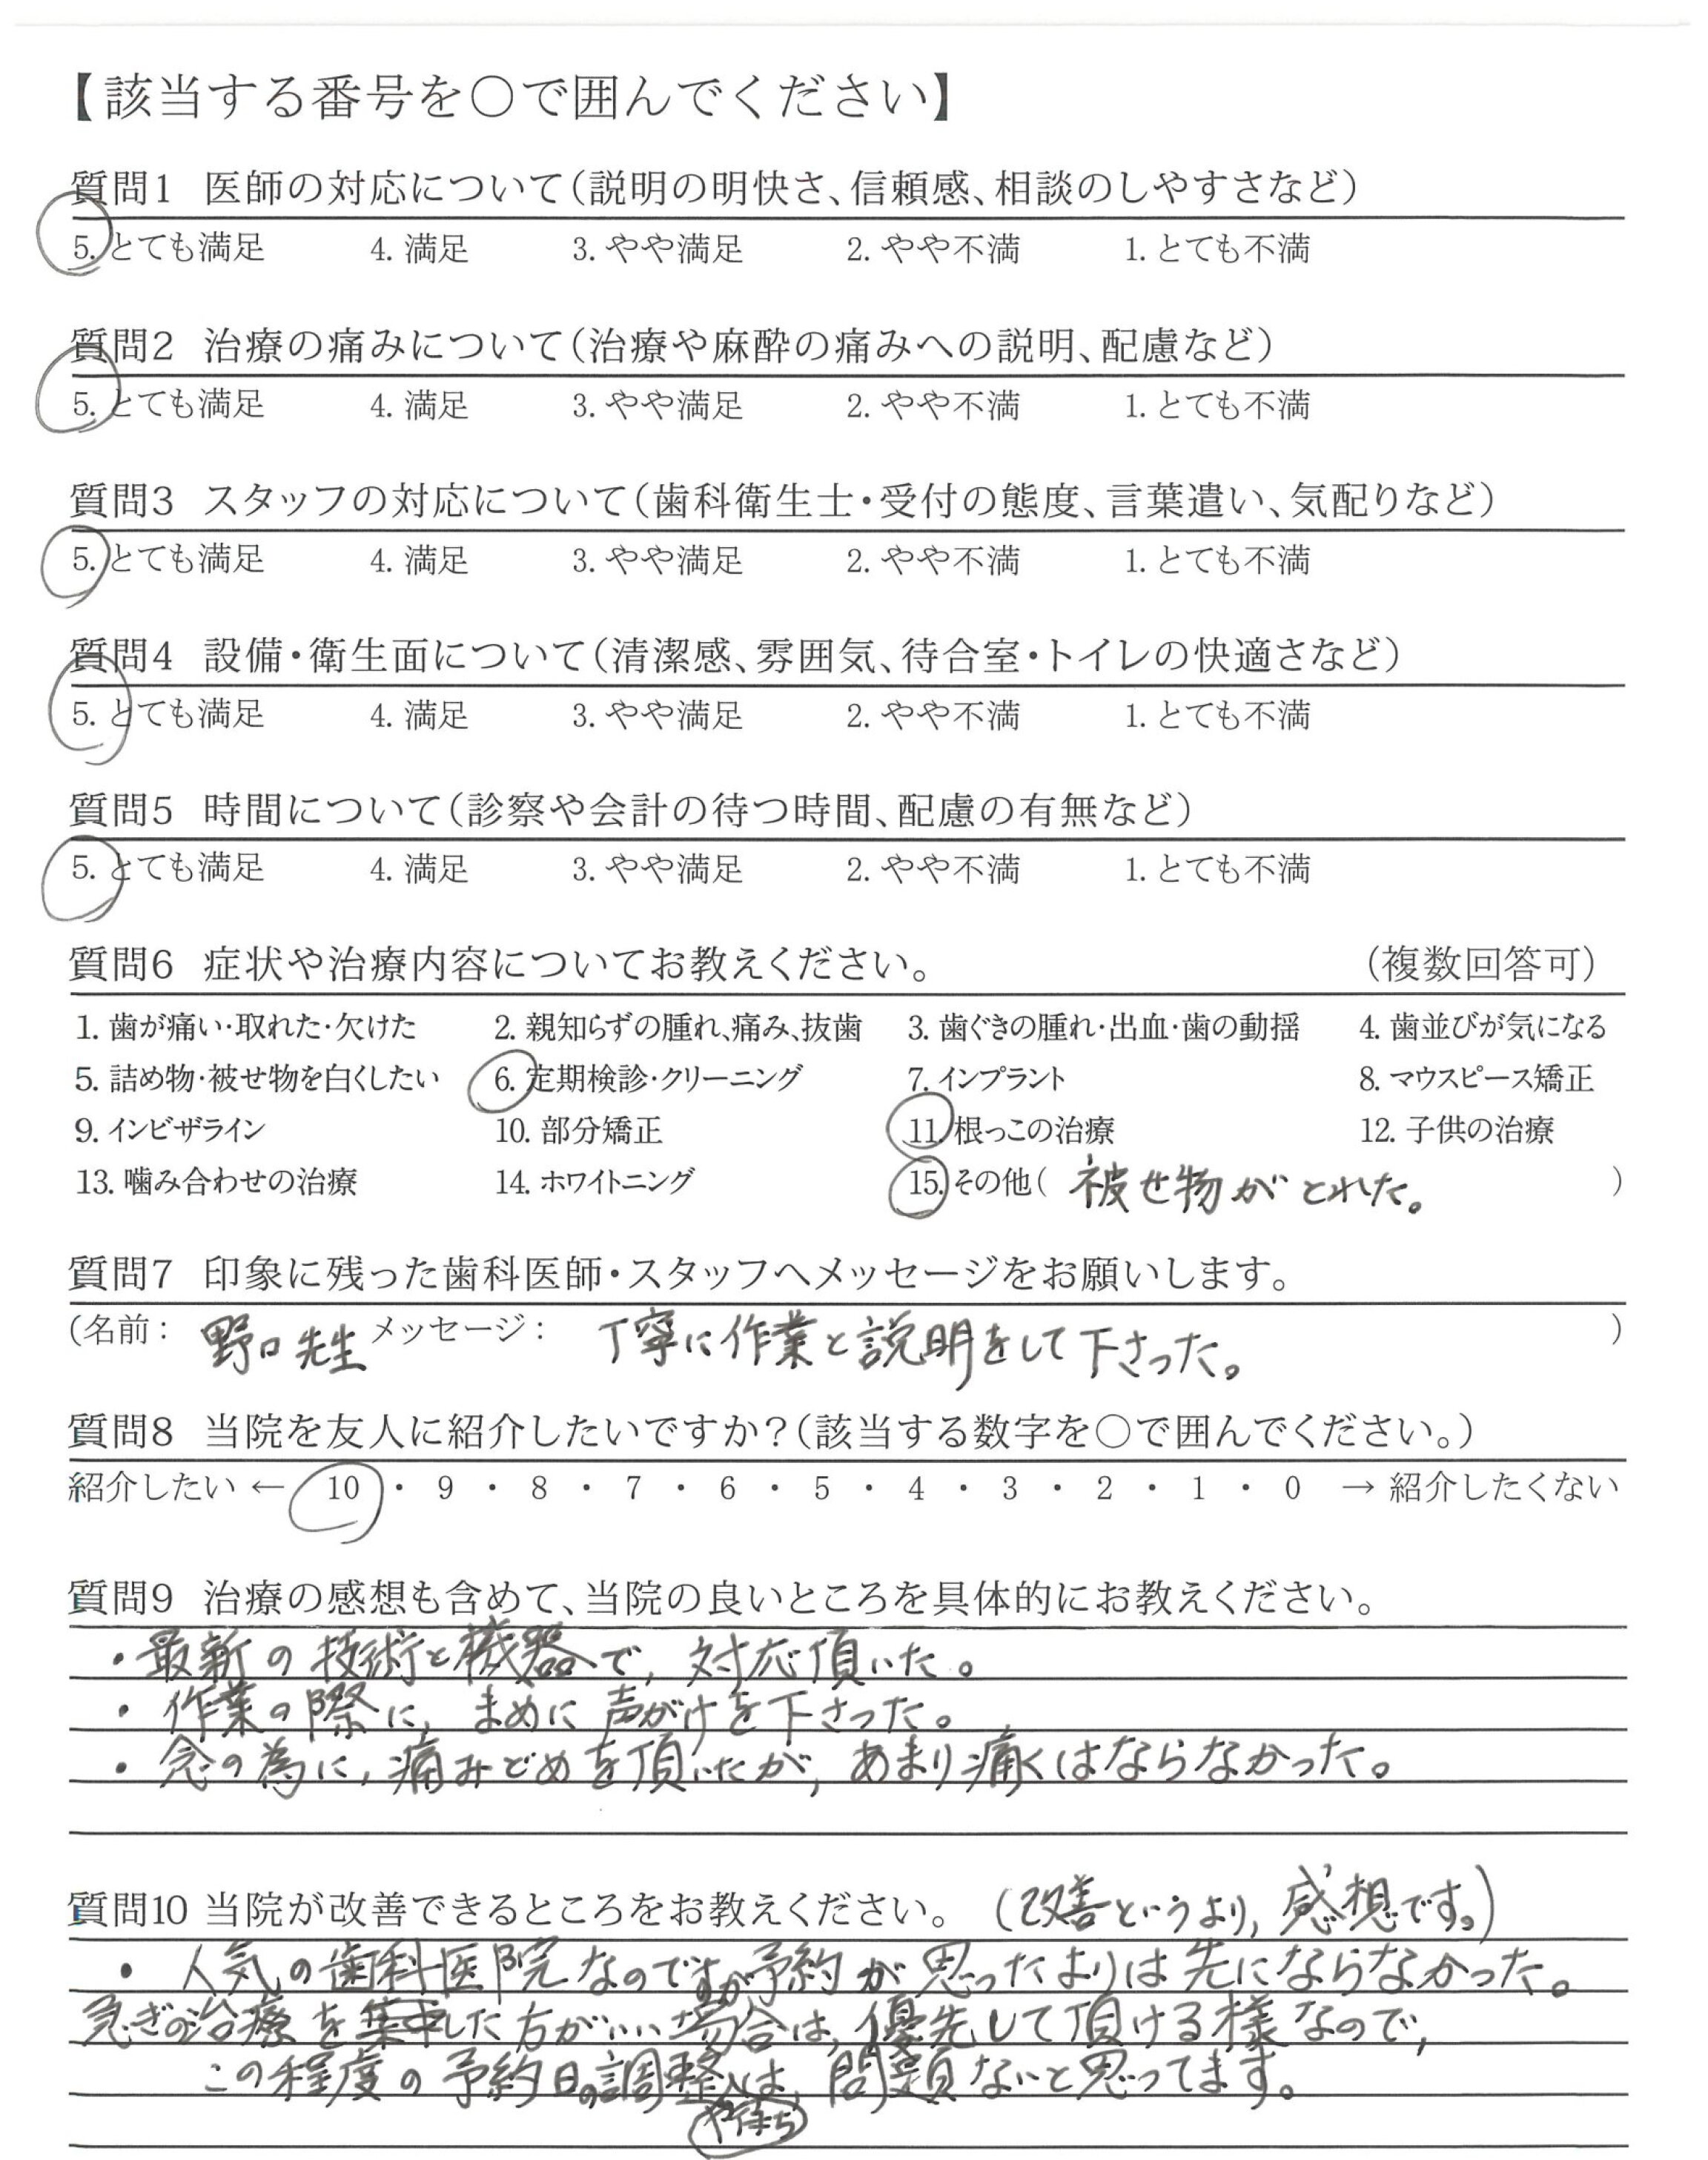 【該当する番号を〇で囲んでください】
質問1 医師の対応について(説明の明快さ、信頼感、相談のしやすさなど)
5. とても満足 4. 満足 3. やや満足 2. やや不満 1. とても不満
質問2 治療の痛みについて(治療や麻酔の痛みへの説明、配慮など)
5. とても満足 4. 満足 3. やや満足 2. やや不満 1. とても不満
質問3 スタッフの対応について(歯科衛生士・受付の態度、言葉遣い、気配りなど)
5. とても満足 4. 満足 3. やや満足 2. やや不満 1. とても不満
質問4 設備・衛生面について(清潔感、雰囲気、待合室・トイレの快適さなど)
5. とても満足 4. 満足 3. やや満足 2. やや不満 1. とても不満
質問5 時間について(診察や会計の待つ時間、配慮の有無など)
5. とても満足 4. 満足 3. やや満足 2. やや不満 1. とても不満
質問6 症状や治療内容についてお教えください。 (複数回答可)
1. 歯が痛い・取れた・欠けた 2. 親知らずの腫れ、痛み、抜歯 3. 歯ぐきの腫れ・出血・歯の動揺 4. 歯並びが気になる
5. 詰め物・被せ物を白くしたい 6. 定期検診・クリーニング 7. インプラント 8. マウスピース矯正
9. インビザライン 10. 部分矯正 11. 根っこの治療 12. 子供の治療
13. 噛み合わせの治療 14. ホワイトニング 15. その他( 被せ物がとれた。 )
質問7 印象に残った歯科医師・スタッフへメッセージをお願いします。
(名前: 野口先生 メッセージ: 丁寧に作業と説明をして下さった。 )
質問8 当院を友人に紹介したいですか?(該当する数字を〇で囲んでください。)
紹介したい ← 10 ・ 9 ・ 8 ・ 7 ・ 6 ・ 5 ・ 4 ・ 3 ・ 2 ・ 1 ・ 0 → 紹介したくない
質問9 治療の感想も含めて、当院の良いところを具体的にお教えください。
・最新の技術と機器で, 対応頂いた。
・作業の際に, まめに声がけを下さった。
・念の為に, 痛みどめを頂いたが, あまり痛くはならなかった。
質問10 当院が改善できるところをお教えください。 (改善というより, 感想です。)
・人気の歯科医院なのですが予約が思ったよりは先にならなかった。
急ぎの治療をした方がいい場合は, 優先して頂ける様なので,
この程度の予約日の調整や待ちは, 問題ないと思ってます。